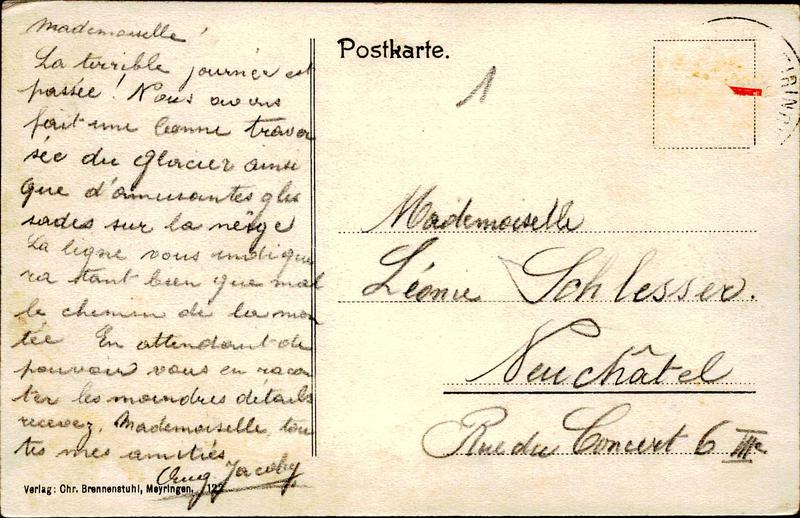 Mademoiselle!
La terrible journée est
passée! Nous avons
fait une bonne traver
sée du glacier ainsi
que d'amusantes glis
sades sur la neige
La ligne vous indique
ra tant bien que mal
le chemin de la mon
tée En attendant de
pouvoir vous en racon
ter les moindres détails
recevez, Mademoiselle, tou
tes mes amitiés
Aug. Jacoby
Verlag: Chr. Brennenstuhl, Meyringen. 122
Postkarte.
1
Mademoiselle
Léonie Schlesser.
Neuchâtel
Rue du Concert 6 IIIe